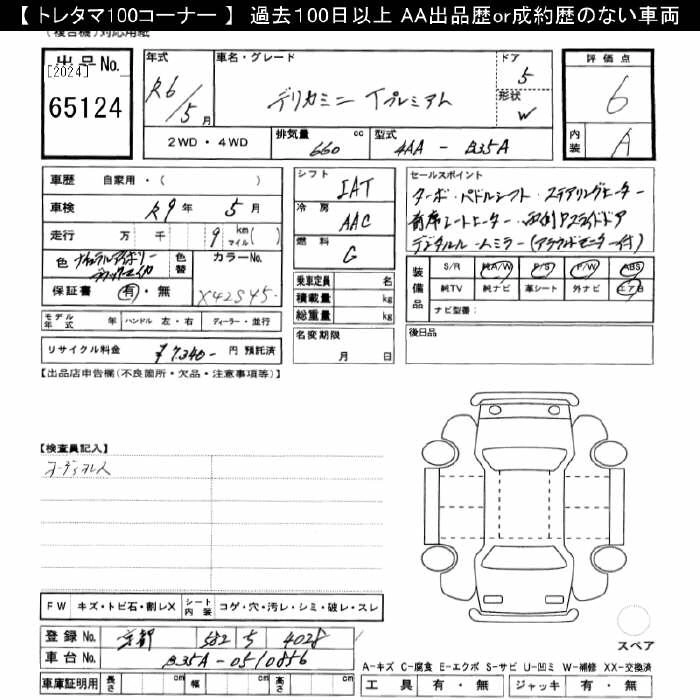 【 トレタマ100コーナー 】 過去100日以上 AA出品歴or成約歴のない車両
(複合機)対応用紙
出品No. [2024]
65124
年式 R6/5月
車名・グレード デリカミニ Tプレミアム
ドア 5
形状 W
評価点 6
内装 A
2WD・4WD
排気量 660 cc
型式 4AA - B35A
車歴 自家用・( )
車検 R9年 5月
走行 万 千 9 km マイル( )
色 ナチュラルアイボリー
色替
カラーNo. X42S45
保証書 有・無
モデル年式 年 ハンドル 左・右 ディーラー・並行
リサイクル料金 ¥7,340- 円 預託済
シフト IAT
冷房 AAC
燃料 G
乗車定員 名
積載量 kg
総重量 kg
名変期限
月 日
セールスポイント
ターボ・パドルシフト・ステアリングヒーター
前席シートヒーター・両側Pスライドドア
デジタルルームミラー(アラウンドモニター付)
装備品
S/R 純A/W P/S P/W ABS
純TV 純ナビ 革シート 外ナビ エアB
ナビ型番:
後日品
【出品店申告欄(不良箇所・欠品・注意事項等)】
【検査員記入】
オーディオレス
FW キズ・トビ石・割レX シート内装 コゲ・穴・汚レ・シミ・破レ・スレ
登録No. 京都 582 ち 4028
車台No. B35A-0510856
車庫証明用 長さ cm 幅 cm 高さ cm
スペア
A-キズ C-腐食 E-エクボ S-サビ U-凹ミ W-補修 XX-交換済
工具 有・無 ジャッキ 有・無